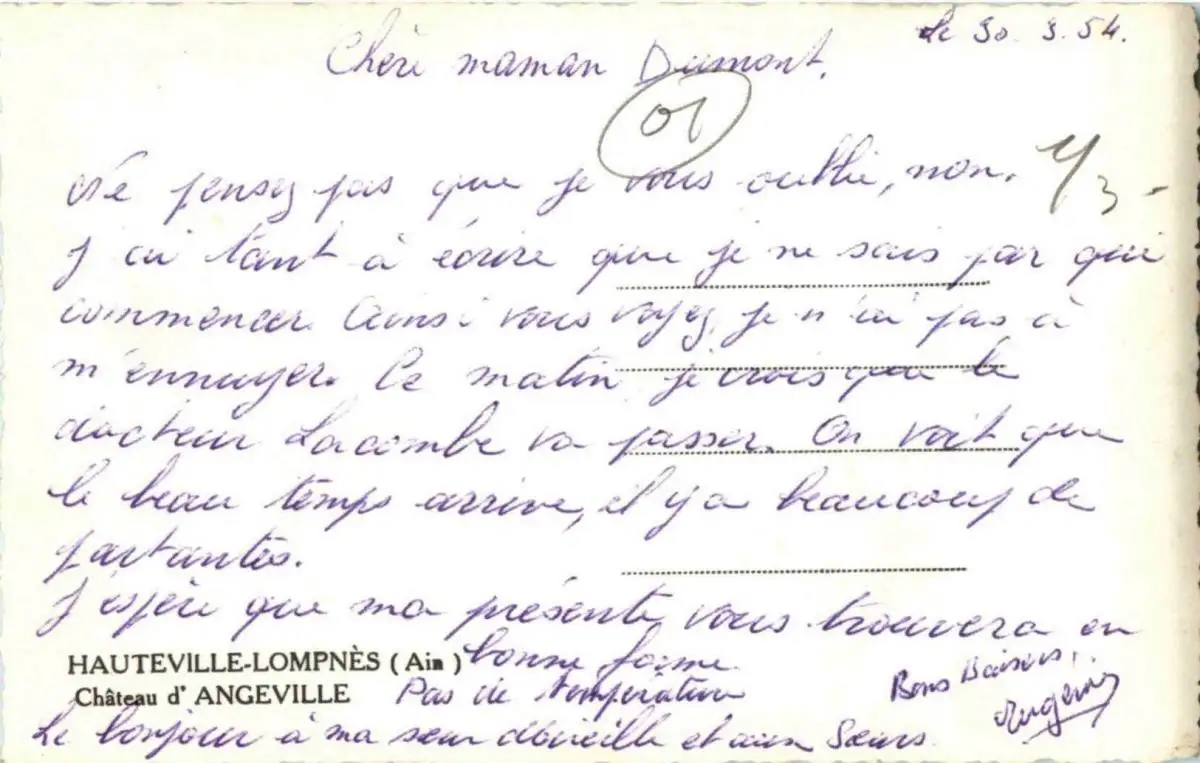 le 30. 3. 54.
Chère maman Dumont.
01
Ne pensez pas que je vous oublie, non.
4/3 -
J'ai tant à écrire que je ne sais par qui
commencer. Ainsi vous voyez, je n'ai pas à
m'ennuyer. Ce matin je crois que le
docteur Lacombe va passer. On voit que
le beau temps arrive, il y a beaucoup de
partantes.
J'espère que ma présente vous trouvera en
bonne forme.
HAUTEVILLE-LOMPNÈS (Ain)
Château d'ANGEVILLE
Pas de température
Bons Baisers,
Le bonjour à ma sœur Mireille et aux Sœurs.